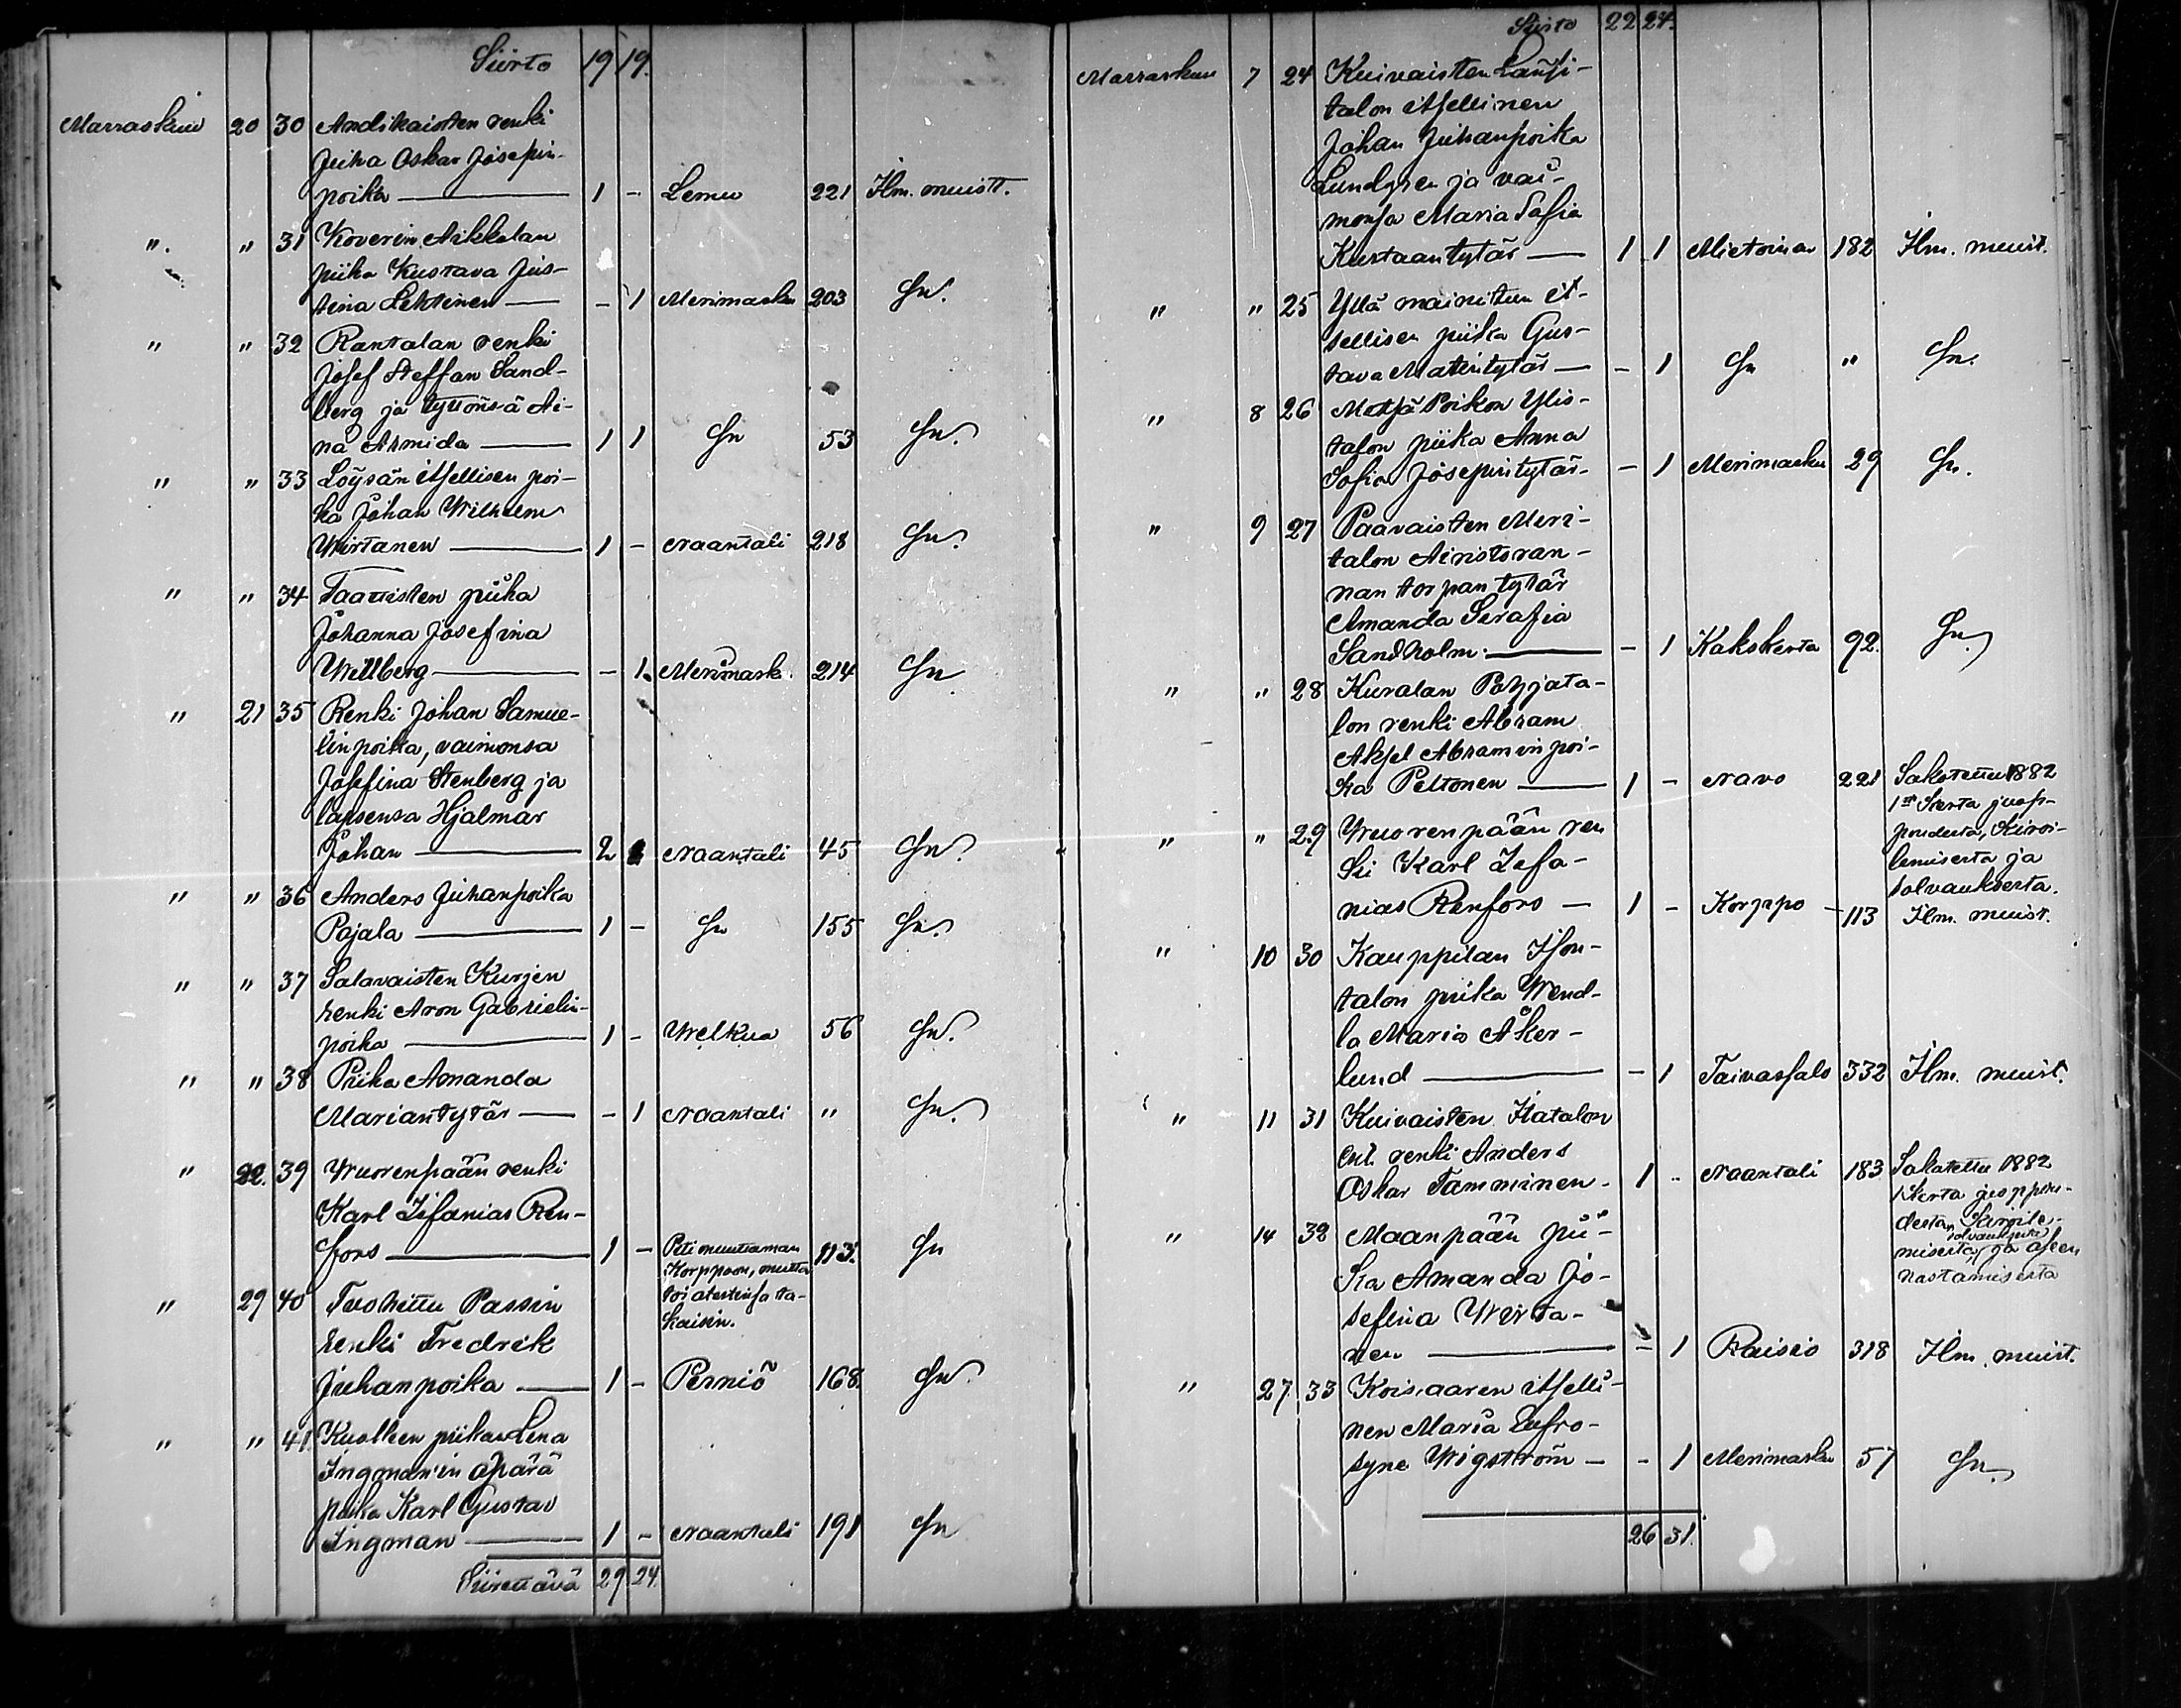 Siirto 19 19.
Marraskuu 20 30 Andikaisten renki
Juha Oskar Josepin-
poika — 1 - Lemu 221 Ilm. muist.
". " 31 Koverin Aikkalan
piika Kustava Jus-
tina Lehtinen — - 1 Merimasku 203 Sn.
" " 32 Rantalan renki
Josef Steffan Sand-
berg ja tyttönsä Ai-
na Armida — 1 1 Sn 53 Sn.
" " 33 Löysän itsellisen poi-
ka Johan Wilhelm
Wirtanen — 1 - Naantali 218 Sn.
" " 34 Taattisten piika
Johanna Josefina
Wellberg — - 1. Merimask. 214 Sn
" 21 35 Renki Johan Samue-
linpoika, vaimonsa
Josefina Stenberg ja
lapsensa Hjalmar
Johan — 2 1 Naantali 45 Sn.
" " 36 Anders Juhanpoika
Pajala — 1 - Sn 155 Sn.
" " 37 Salavaisten Kurjen
renki Aron Gabrielin-
poika — 1 - Welkua 56 Sn.
" " 38 Piika Amanda
Mariantytär — - 1 Naantali " Sn.
" 22. 39 Wuorenpään renki
Karl Zefanias Ren-
fors — 1 - Piti muuttaman 113. Sn
Korppoon, mutta
toi atestinsa ta-
kaisin.
" 29 40 Tuohittu Passin
renki Fredrik
Juhanpoika — 1 - Perniö 168. Sn
" " 41. Kuolleen piikan Lena
Ingman'in äpärä
poika Karl Gustav
Ingman — 1 - Naantali 191 Sn
Siirettävä 29 24.
Siirto 22 24.
Marraskuu 7 24 Kuivaisten Lausi-
talon itsellinen
Johan Juhanpoika
Lundgren ja vai-
monsa Maria Sofia
Kustaantytär — 1 1 Mietoinen 182 Ilm. muist.
" " 25 Yllä mainitun it-
sellisen piika Gus-
tava Matintytär — - 1 Sn " Sn.
" 8 26 Metsä Poikon Ylis-
talon piika Anna
Sofia Josepintytär - - 1 Merimasku 29 Sn.
" 9 27 Paavaisten Meri-
talon Airistoran-
nan torpan tytär
Amanda Serafia
Sandholm. — - 1 Kakskerta 92. Sn.
" " 28 Kuralan Pohjata-
lon renki Abram
Aksel Abramin poi-
ka Peltonen — 1 - Navo 221 Sakotettu 1882
1st kerta juop-
poudesta, kiroi-
lemisesta ja
solvauksesta.
" " 29 Wuorenpään ren
ki Karl Zefa-
nias Renfors — 1 - Korppo - 113 Ilm. muist.
" 10 30 Kauppilan Ison-
talon piika Wend-
la Maria Åker-
lund — - 1 Taivassalo 332 Ilm. muist.
" 11 31 Kuivaisten Katalon
ent. renki Anders
Oskar Tamminen - 1 - Naantali 183 Sakotettu 1882
1 kerta juoppou-
desta, kiroile-
misesta, solvauksesta ja aseen
nostamisesta
" 14 32 Maanpään pii-
ka Amanda Jo-
sefina Wirta-
nen — - 1 Raisio 318 Ilm. muist.
" 27. 33 Koisaaren itselli-
nen Maria Eufro-
syne Wigström — - 1 Merimasku 57 Sn.
26 31.